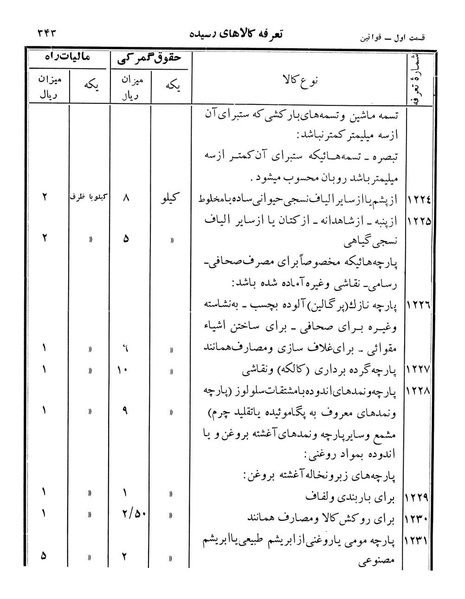 ۳۴۳ تعرفه کالاهای رسیده قسمت اول ــ قوانین
شمارهٔ تعرفه نوع کالا حقوق گمرکی مالیات راه
یکه میزان ریال یکه میزان ریال
تسمه ماشین و تسمه‌های بارکشی که ستبرای آن
از سه میلیمتر کمتر نباشد:
تبصره ــ تسمه‌هائیکه ستبرای آن کمتر از سه
میلیمتر باشد روبان محسوب میشود.
۱۲۲٤ از پشم یا از سایر الیاف نسجی حیوانی ساده یا مخلوط کیلو ۸ کیلو با ظرف ۲
۱۲۲۵ از پنبه ــ از شاهدانه ــ از کتان یا از سایر الیاف
نسجی گیاهی » ۵ » ۲
پارچه هائیکه مخصوصاً برای مصرف صحافی ــ
رسامی ــ نقاشی وغیره آماده شده باشد:
۱۲۲۶ پارچه نازك (پرگالین) آلوده بچسب ــ به نشاسته
وغیره برای صحافی ــ برای ساختن اشیاء
مقوائی ــ برای غلاف سازی ومصارف همانند » ۶ » ۱
۱۲۲۷ پارچه گرده برداری (کالکه) ونقاشی » ۱۰ » ۱
۱۲۲۸ پارچه ونمدهای اندوده با مشتقات سلولوز (پارچه
ونمدهای معروف به پگاموئیده یا تقلید چرم) » ۹ » ۱
مشمع وسایر پارچه ونمدهای آغشته بروغن و یا
اندوده بمواد روغنی:
پارچه‌های زبر ونخاله آغشته بروغن:
۱۲۲۹ برای باربندی ولفاف » ۱ » ۱
۱۲۳۰ برای روکش کالا ومصارف همانند » ۲/۵۰ » ۱
۱۲۳۱ پارچه مومی یا روغنی از ابریشم طبیعی یا ابریشم
مصنوعی » ۲ » ۵